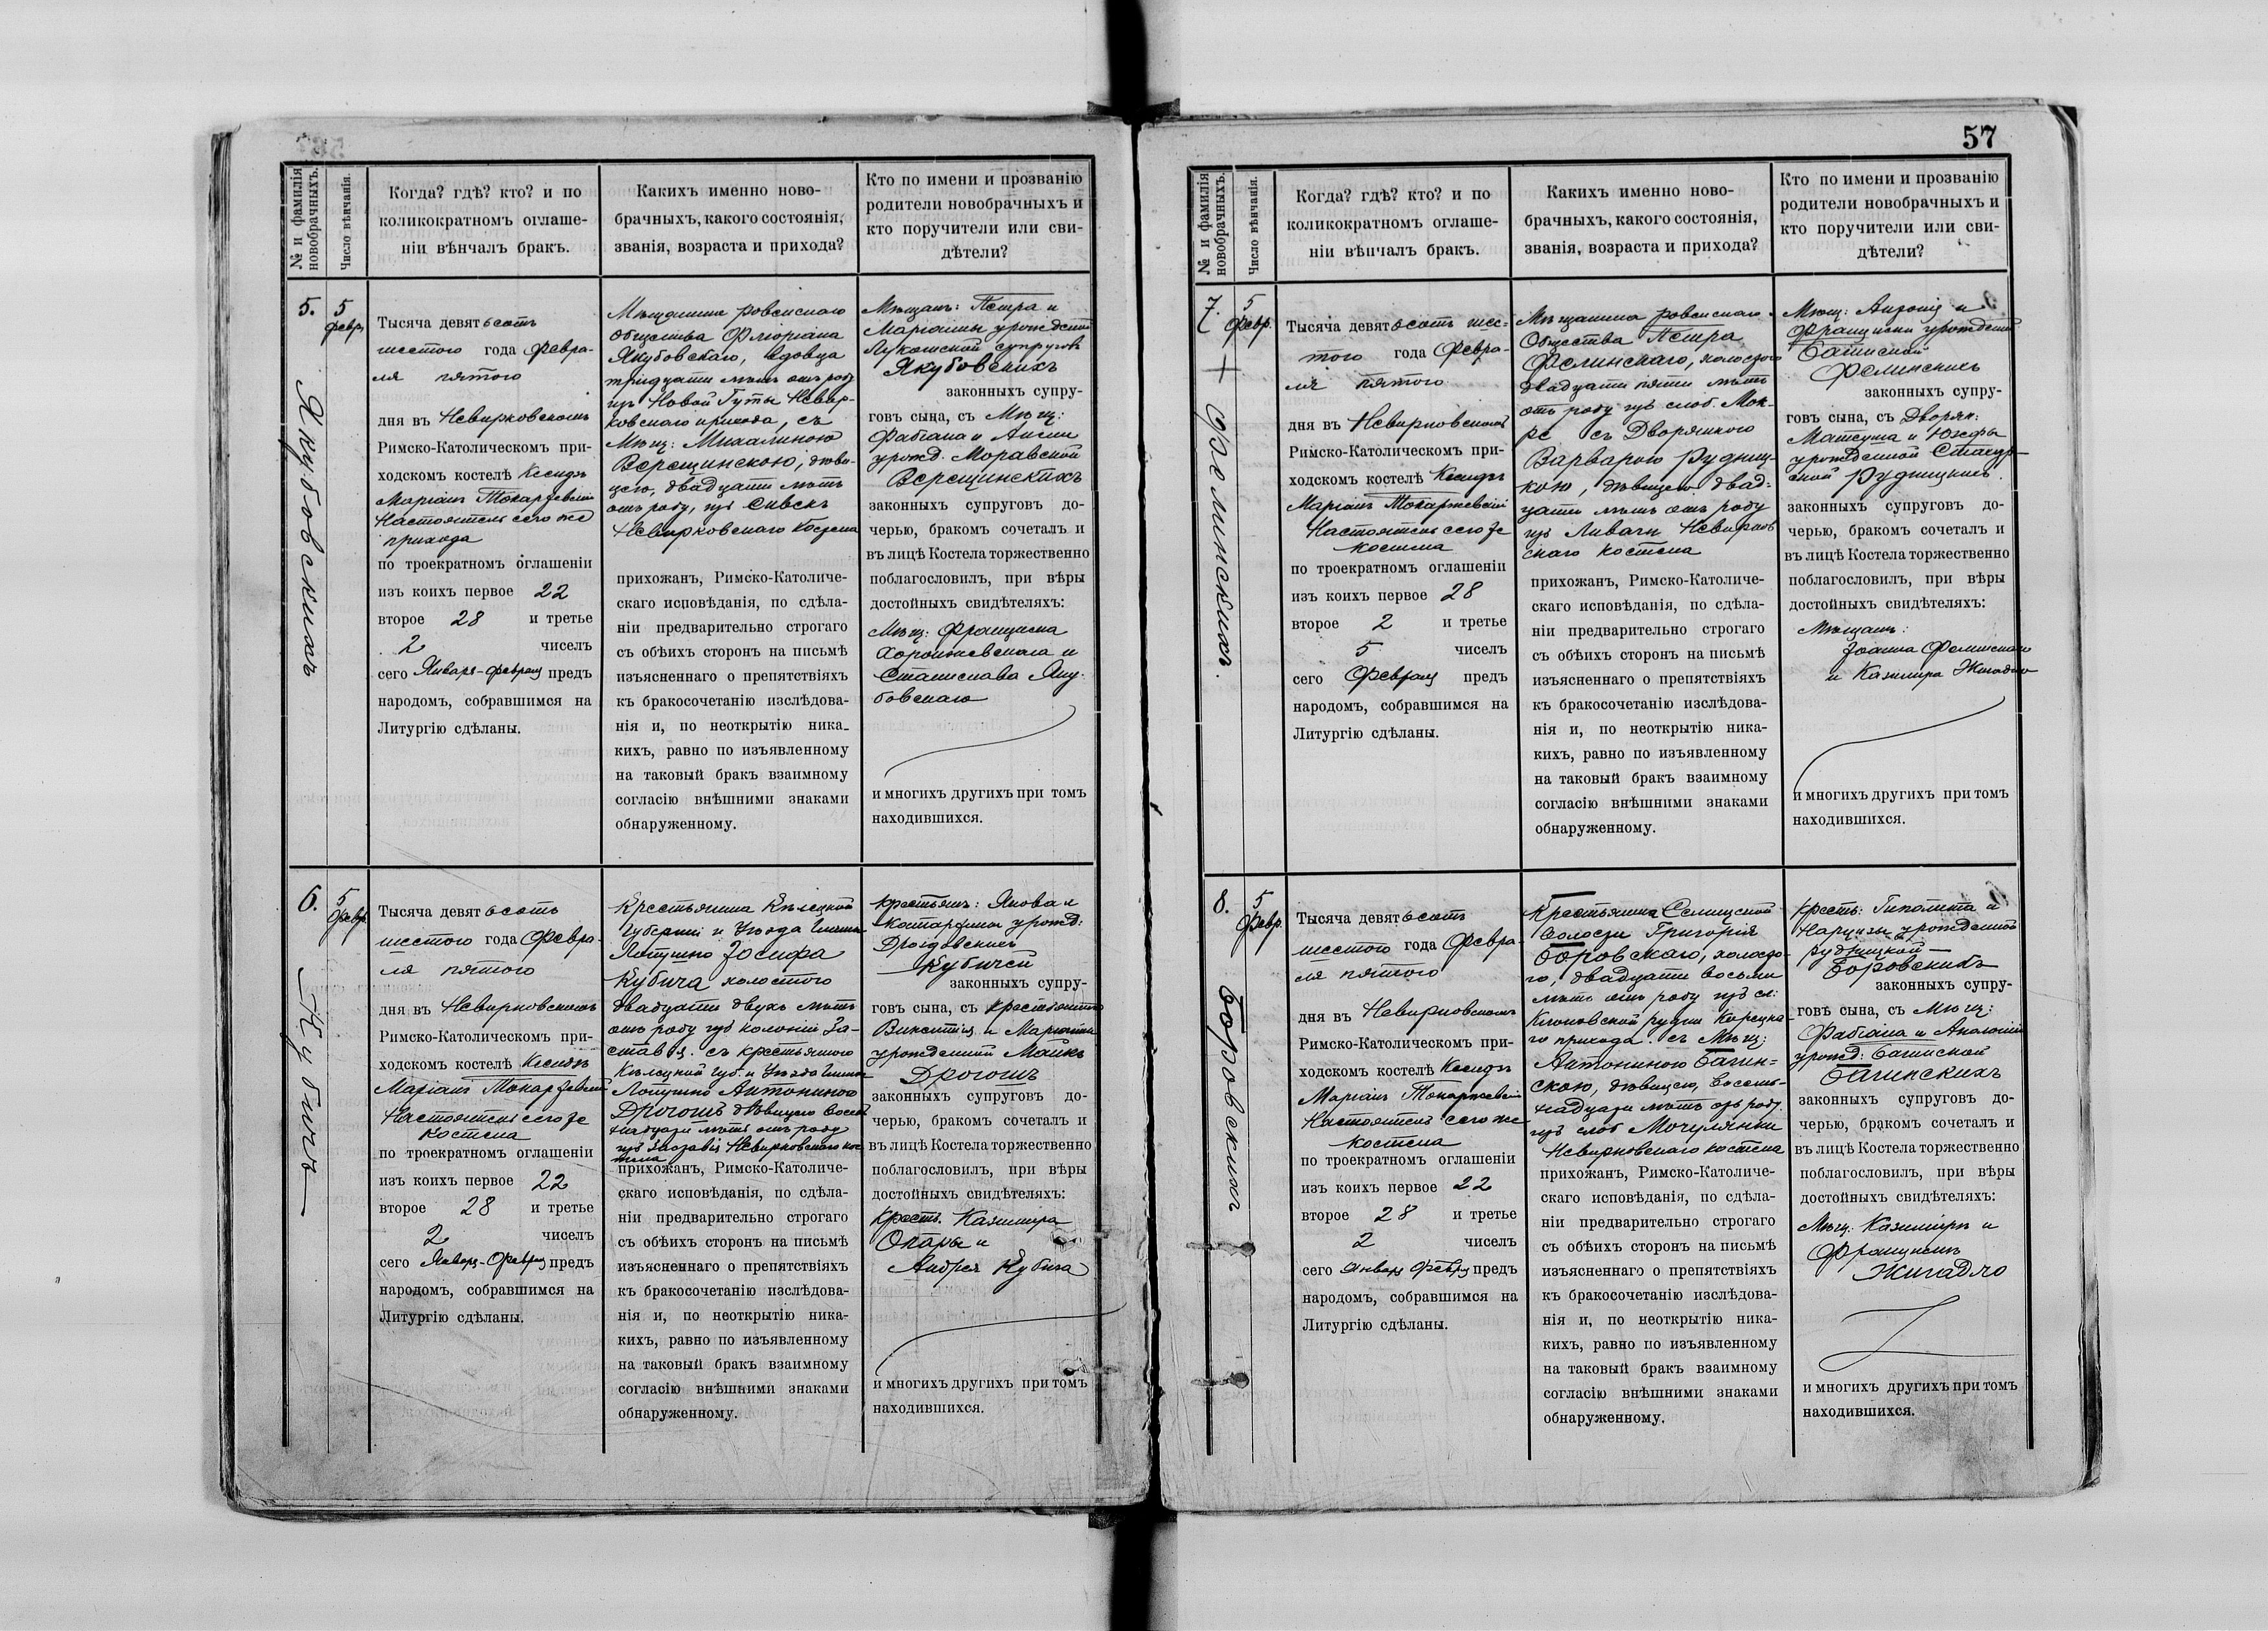 № и фамилія новобрачныхъ.
Число вѣнчанія.
Когда? гдѣ? кто? и по
коликократномъ оглаше-
ніи вѣнчалъ бракъ.
Какихъ именно ново-
брачныхъ, какого состоянія,
званія, возраста и прихода?
Кто по имени и прозванію
родители новобрачныхъ и
кто поручители или сви-
дѣтели?
5.
Якубовскихъ
5
февр.
Тысяча девятьсотъ
шестого года Февра-
ля пятого
дня въ Невирковскомъ
Римско-Католическомъ при-
ходскомъ костелѣ Ксендзъ
Маріанъ Токаржевскій
Настоятель сего же
прихода
по троекратномъ оглашеніи
изъ коихъ первое 22
второе 28 и третье
2 чиселъ
сего Января-Февраля предъ
народомъ, собравшимся на
Литургію сдѣланы.
Мѣщанина ровенскаго
общества Флоріана
Якубовскаго, вдовца
тридцати лѣтъ отъ роду
изъ Новой Гуты Невир-
ковскаго прихода, съ
Мѣщ: Михалиною
Верещинскою, дѣви-
цею, двадцати лѣтъ
отъ роду, изъ
Невирковскаго Костела
прихожанъ, Римско-Католиче-
скаго исповѣданія, по сдѣла-
ніи предварительно строгаго
съ обѣихъ сторонъ на письмѣ
изъясненнаго о препятствіяхъ
къ бракосочетанію изслѣдова-
нія и, по неоткрытію ника-
кихъ, равно по изъявленному
на таковый бракъ взаимному
согласію внѣшними знаками
обнаруженному.
Мѣщанъ: Петра и
Маріанны урожденной
супруговъ
Якубовскихъ
законныхъ супру-
говъ сына, съ Мѣщ:
Фабіана и
урожд. Моравской
Верещинскихъ
законныхъ супруговъ до-
черью, бракомъ сочеталъ и
въ лицѣ Костела торжественно
поблагословилъ, при вѣры
достойныхъ свидѣтеляхъ:
Мѣщ: Францишка
и
Станислава Яку-
бовскаго
и многихъ другихъ при томъ
находившихся.
6.
Кубичъ
5
Февр.
Тысяча девятьсотъ
шестого года Февра-
ля пятого
дня въ Невирковскомъ
Римско-Католическомъ при-
ходскомъ костелѣ Ксендзъ
Маріанъ Токаржевскій
Настоятель сего же
костела
по троекратномъ оглашеніи
изъ коихъ первое 22
второе 28 и третье
2 чиселъ
сего Января-Февраля предъ
народомъ, собравшимся на
Литургію сдѣланы.
Крестьянина Кѣлецкой
Губерніи и Уѣзда гмины
Лопушно Іосифа
Кубича холостого
двадцати двухъ лѣтъ
отъ роду изъ колоніи За-
ставя. съ крестьянкою
Кѣлецкой Губ. и Уѣзда гмины
Лопушно Антониною
Дрогошъ дѣвицею восем-
надцати лѣтъ отъ роду
изъ Невирковскаго кос-
тела
прихожанъ, Римско-Католиче-
скаго исповѣданія, по сдѣла-
ніи предварительно строгаго
съ обѣихъ сторонъ на письмѣ
изъясненнаго о препятствіяхъ
къ бракосочетанію изслѣдова-
нія и, по неоткрытію ника-
кихъ, равно по изъявленному
на таковый бракъ взаимному
согласію внѣшними знаками
обнаруженному.
крестьянъ: Якова и
урожд:
Дроздовскихъ
Кубичей
законныхъ супру-
говъ сына, съ крестьянъ
Викентія и Маріанны
урожденной
Дрогошъ
законныхъ супруговъ до-
черью, бракомъ сочеталъ и
въ лицѣ Костела торжественно
поблагословилъ, при вѣры
достойныхъ свидѣтеляхъ:
Крест. Казимира
Опары и
Андрея Кубича
и многихъ другихъ при томъ
находившихся.
57
№ и фамилія новобрачныхъ.
Число вѣнчанія.
Когда? гдѣ? кто? и по
коликократномъ оглаше-
ніи вѣнчалъ бракъ.
Какихъ именно ново-
брачныхъ, какого состоянія,
званія, возраста и прихода?
Кто по имени и прозванію
родители новобрачныхъ и
кто поручители или сви-
дѣтели?
7.
Фелинскихъ.
5
Февр.
Тысяча девятьсотъ шес-
того года Февра-
ля пятого
дня въ Невирковскомъ
Римско-Католическомъ при-
ходскомъ костелѣ Ксендзъ
Маріанъ Токаржевскій
Настоятель сего же
костела
по троекратномъ оглашеніи
изъ коихъ первое 28
второе 2 и третье
5 чиселъ
сего Февраля предъ
народомъ, собравшимся на
Литургію сдѣланы.
Мѣщанина ровенскаго
Общества Петра
Фелинскаго, холостого
двадцати пяти лѣтъ
отъ роду изъ слоб. Мок-
ре съ Дворянкою
Варварою Рудниц-
кою, дѣвицею двад-
цати лѣтъ отъ роду
изъ Ливачи Невирков-
скаго костела
прихожанъ, Римско-Католиче-
скаго исповѣданія, по сдѣла-
ніи предварительно строгаго
съ обѣихъ сторонъ на письмѣ
изъясненнаго о препятствіяхъ
къ бракосочетанію изслѣдова-
нія и, по неоткрытію ника-
кихъ, равно по изъявленному
на таковый бракъ взаимному
согласію внѣшними знаками
обнаруженному.
Мѣщ: Антонія и
Францишки урожденной
Багинской
Фелинскихъ
законныхъ супру-
говъ сына, съ Дворян:
Матеуша и Юзефы
урожденной
Рудницкихъ.
законныхъ супруговъ до-
черью, бракомъ сочеталъ и
въ лицѣ Костела торжественно
поблагословилъ, при вѣры
достойныхъ свидѣтеляхъ:
Мѣщанъ:
Іоанна Фелинскаго
и Казимира Жигадло
и многихъ другихъ при томъ
находившихся.
8.
Боровскихъ
5
Февр.
Тысяча девятьсотъ
шестого года Февра-
ля пятого
дня въ Невирковскомъ
Римско-Католическомъ при-
ходскомъ костелѣ Ксендзъ
Маріанъ Токаржевскій
Настоятель сего же
костела
по троекратномъ оглашеніи
изъ коихъ первое 22
второе 28 и третье
2 чиселъ
сего Январ Февр предъ
народомъ, собравшимся на
Литургію сдѣланы.
Крестьянина Селищской
волости Григорія
Боровскаго, холосто-
го, двадцати восьми
лѣтъ отъ роду изъ
рудни Корецка-
го прихода. съ Мѣщ:
Антониною Багин-
скою, дѣвицею, восемь-
надцати лѣтъ отъ роду.
изъ слоб Мочулянки
Невирковскаго костела
прихожанъ, Римско-Католиче-
скаго исповѣданія, по сдѣла-
ніи предварительно строгаго
съ обѣихъ сторонъ на письмѣ
изъясненнаго о препятствіяхъ
къ бракосочетанію изслѣдова-
нія и, по неоткрытію ника-
кихъ, равно по изъявленному
на таковый бракъ взаимному
согласію внѣшними знаками
обнаруженному.
крест: Гиполита и
Нарцизы урожденной
Рудницкой
Боровскихъ
законныхъ супру-
говъ сына, съ Мѣщ:
Фабіана и Аполоніи
урожд: Багинской
Багинскихъ
законныхъ супруговъ до-
черью, бракомъ сочеталъ и
въ лицѣ Костела торжественно
поблагословилъ, при вѣры
достойныхъ свидѣтеляхъ:
Мѣщ: Казимира и
Францишка
Жигадло
и многихъ другихъ при томъ
находившихся.